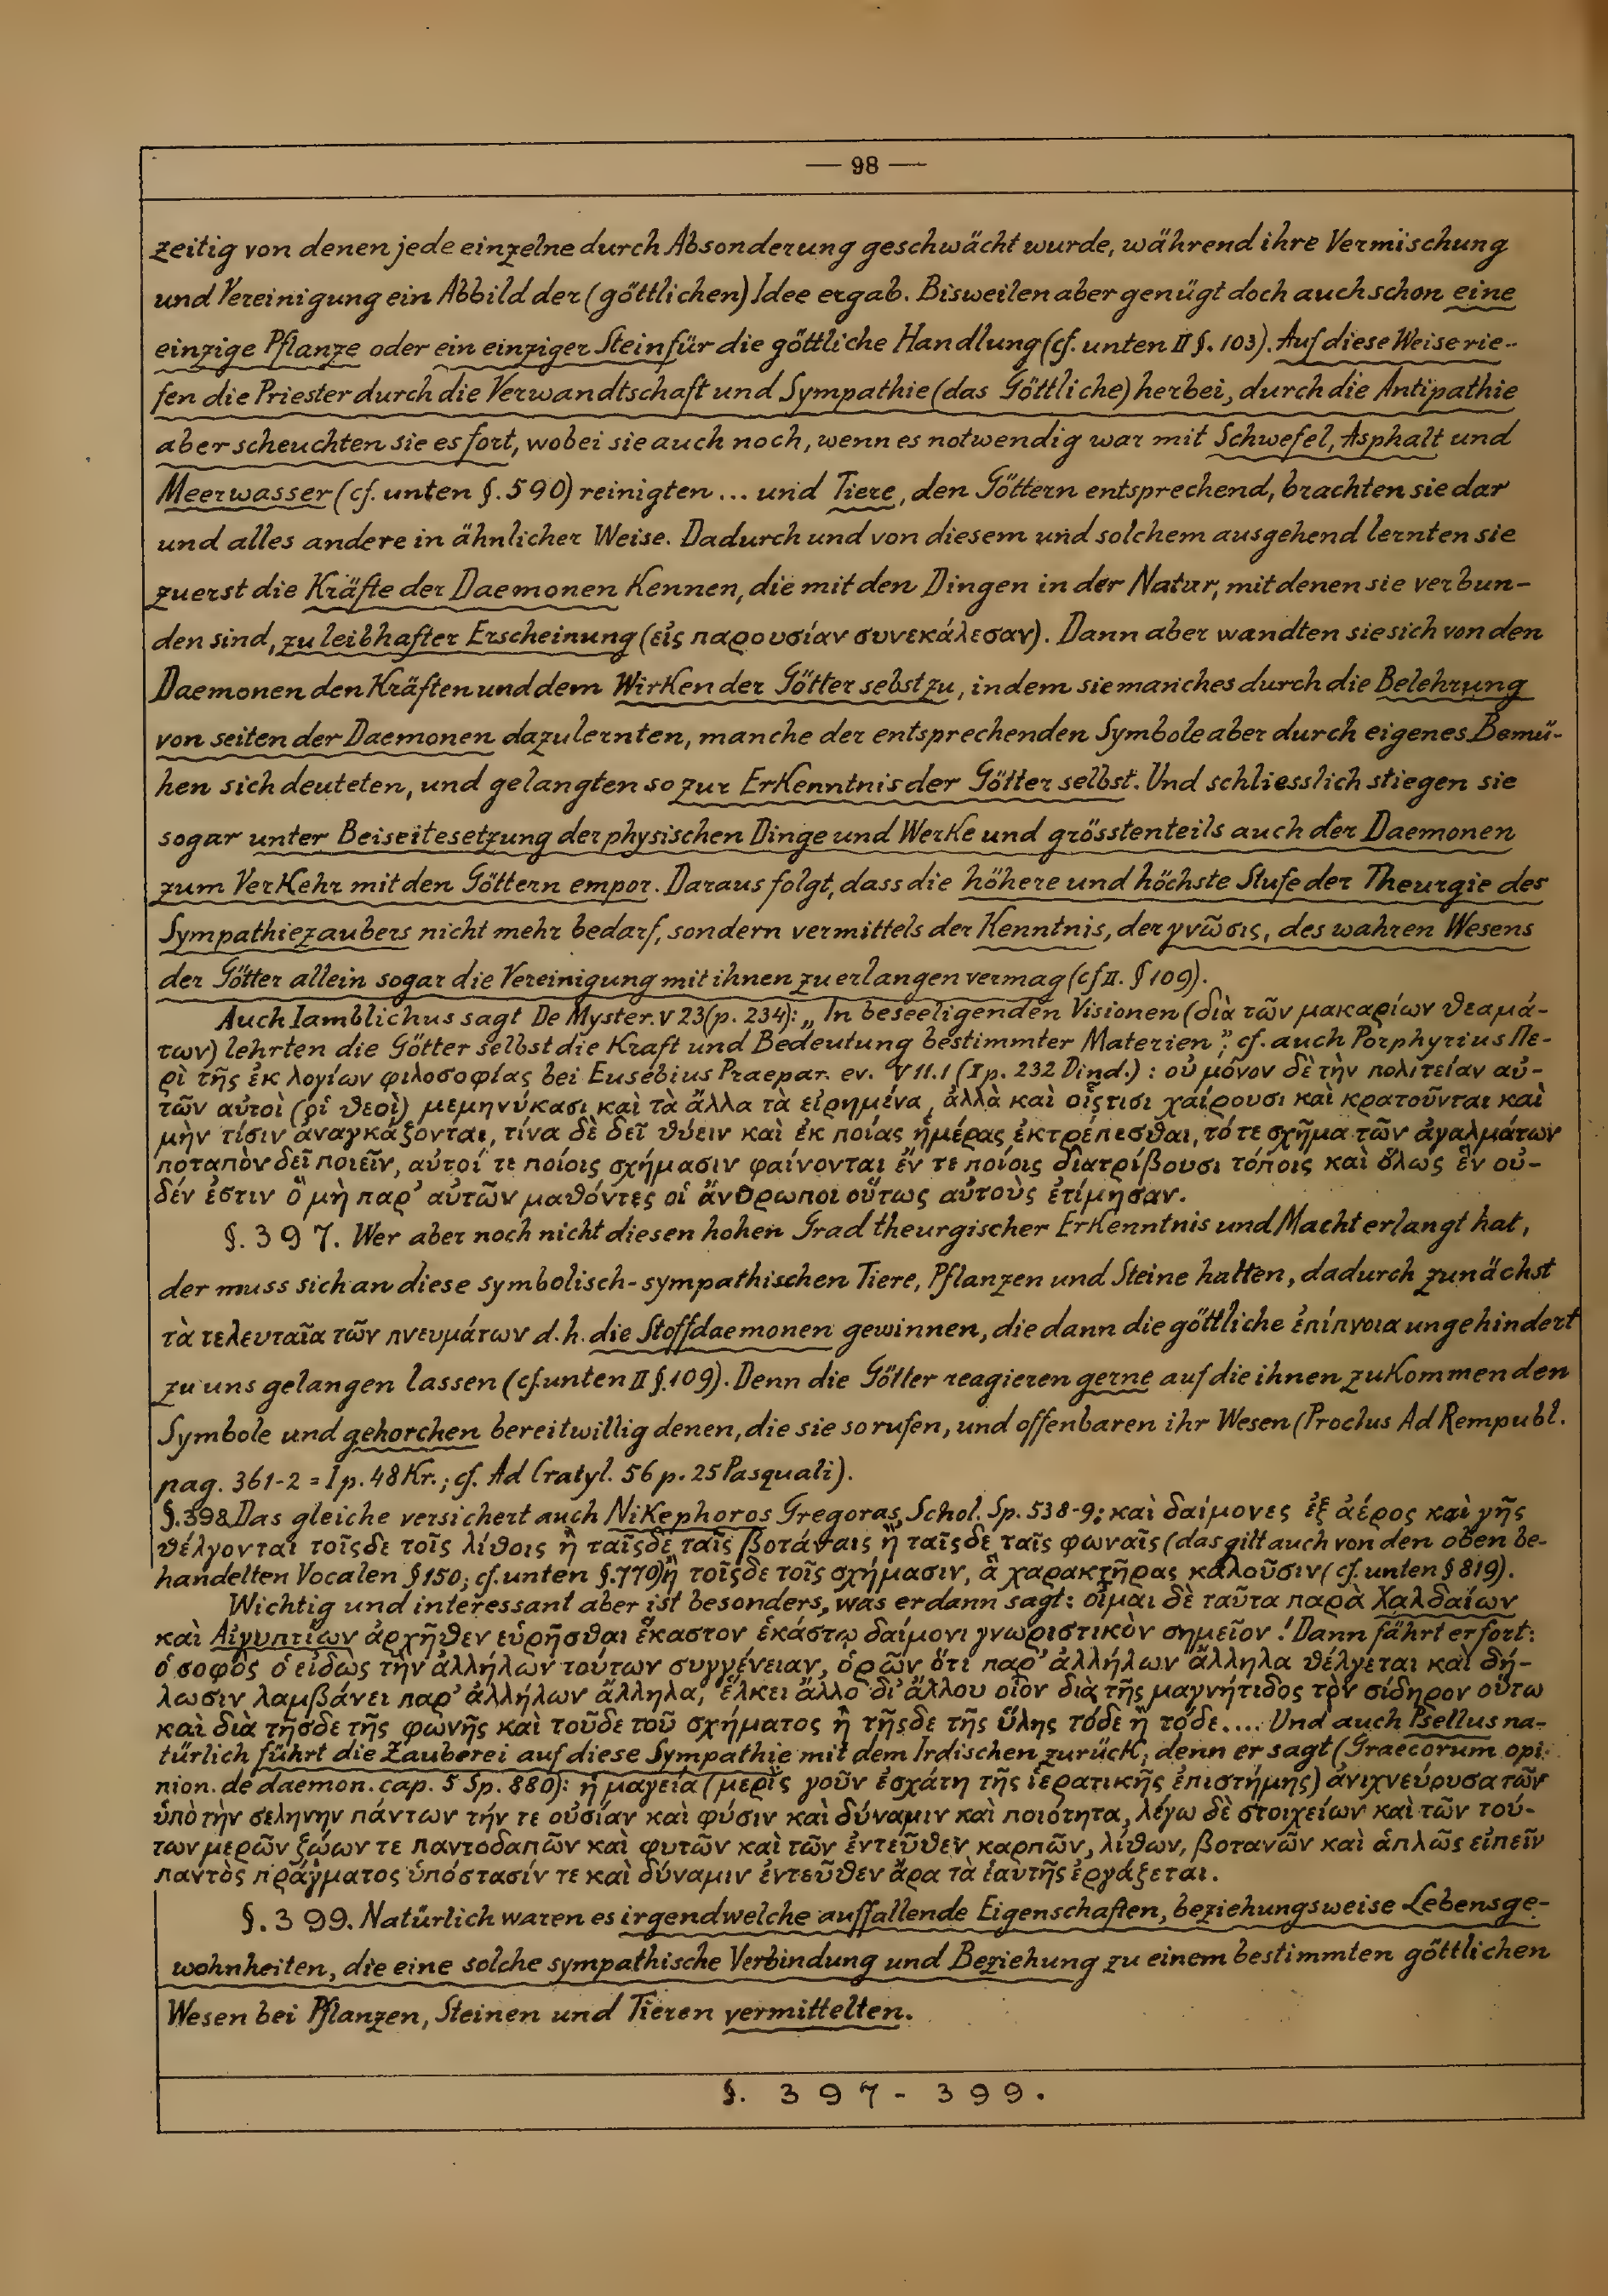 — 98 —
zeitig von denen jede einzelne durch Absonderung geschwächt wurde, während ihre Vermischung
und Vereinigung ein Abbild der (göttlichen) Idee ergab. Bisweilen aber genügt doch auch schon eine
einzige Pflanze oder ein einziger Stein für die göttliche Handlung (cf. unten II §. 103). Auf diese Weise rie-
fen die Priester durch die Verwandtschaft und Sympathie (das Göttliche) herbei, durch die Antipathie
aber scheuchten sie es fort, wobei sie auch noch, wenn es notwendig war mit Schwefel, Asphalt und
Meerwasser (cf. unten §. 590) reinigten ... und Tiere, den Göttern entsprechend, brachten sie dar
und alles andere in ähnlicher Weise. Dadurch und von diesem und solchem ausgehend lernten sie
zuerst die Kräfte der Daemonen Kennen, die mit den Dingen in der Natur, mit denen sie verbun-
den sind, zu leibhafter Erscheinung (εἰς παρουσίαν συνεκάλεσαν). Dann aber wandten sie sich von den
Daemonen den Kräften und dem Wirken der Götter sebst zu, indem sie manches durch die Belehrung
von seiten der Daemonen dazulernten, manche der entsprechenden Symbole aber durch eigenes Bemü-
hen sich deuteten, und gelangten so zur Erkenntnis der Götter selbst. Und schliesslich stiegen sie
sogar unter Beiseitesetzung der physischen Dinge und Werke und grösstenteils auch der Daemonen
zum Verkehr mit den Göttern empor. Daraus folgt, dass die höhere und höchste Stufe der Theurgie des
Sympathiezaubers nicht mehr bedarf, sondern vermittels der Kenntnis, der γνῶσις, des wahren Wesens
der Götter allein sogar die Vereinigung mit ihnen zu erlangen vermag (cf II. § 109).
Auch Iamblichus sagt De Myster. V 23 (p. 234): „In beseeligenden Visionen (διὰ τῶν μακαρίων θεαμά-
των) lehrten die Götter selbst die Kraft und Bedeutung bestimmter Materien”; cf. auch Porphyrius Πε-
ρὶ τῆς ἐκ λογίων φιλοσοφίας bei Eusebius Praepar. ev. V 11.1 (I p. 232 Dind.) : οὐ μόνον δὲ τὴν πολιτείαν αὐ-
τῶν αὐτοὶ (οἱ θεοὶ) μεμηνύκασι καὶ τὰ ἄλλα τὰ εἰρημένα, ἀλλὰ καὶ οἷςτισι χαίρουσι καὶ κρατοῦνται καὶ
μὴν τίσιν ἀναγκάζονται, τίνα δὲ δεῖ θύειν καὶ ἐκ ποίας ἡμέρας ἐκτρέπεσθαι, τό τε σχῆμα τῶν ἀγαλμάτων
ποταπὸν δεῖ ποιεῖν, αὐτοί τε ποίοις σχήμασιν φαίνονται ἔν τε ποίοις διατρίβουσι τόποις καὶ ὅλως ἓν οὐ-
δέν ἐστιν ὃ μὴ παρ' αὐτῶν μαθόντες οἱ ἄνθρωποι οὕτως αὐτοὺς ἐτίμησαν.
§. 397. Wer aber noch nicht diesen hohen Grad theurgischer Erkenntnis und Macht erlangt hat,
der muss sich an diese symbolisch-sympathischen Tiere, Pflanzen und Steine halten, dadurch zunächst
τὰ τελευταῖα τῶν πνευμάτων d. h. die Stoffdaemonen gewinnen, die dann die göttliche ἐπίπνοια ungehindert
zu uns gelangen lassen (cf. unten II §. 109). Denn die Götter reagieren gerne auf die ihnen zukommenden
Symbole und gehorchen bereitwillig denen, die sie so rufen, und offenbaren ihr Wesen (Proclus Ad Rempubl.
pag. 361-2 = I p. 48 Kr.; cf. Ad Cratyl. 56 p. 25 Pasquali).
§. 398 Das gleiche versichert auch Nikephoros Gregoras, Schol. Sp. 538-9: καὶ δαίμονες ἐξ ἀέρος καὶ γῆς
θέλγονται τοῖςδε τοῖς λίθοις ἢ ταῖςδε ταῖς βοτάναις ἢ ταῖςδε ταῖς φωναῖς (das gilt auch von den oben be-
handelten Vocalen § 150; cf. unten §. 770) ἢ τοῖςδε τοῖς σχήμασιν, ἃ χαρακτῆρας καλοῦσιν (cf. unten § 819).
Wichtig und interessant aber ist besonders, was er dann sagt: οἶμαι δὲ ταῦτα παρὰ Χαλδαίων
καὶ Αἰγυπτίων ἀρχῆθεν εὑρῆσθαι ἕκαστον ἑκάστῳ δαίμονι γνωριστικὸν σημεῖον ! Dann fährt er fort:
ὁ σοφὸς ὁ εἰδὼς τὴν ἀλλήλων τούτων συγγένειαν, ὁρῶν ὅτι παρ' ἀλλήλων ἄλληλα θέλγεται καὶ δή-
λωσιν λαμβάνει παρ' ἀλλήλων ἄλληλα, ἕλκει ἄλλο δι' ἄλλου οἷον διὰ τῆς μαγνήτιδος τὸν σίδηρον οὕτω
καὶ διὰ τῆσδε τῆς φωνῆς καὶ τοῦδε τοῦ σχήματος ἢ τῆςδε τῆς ὕλης τόδε ἢ τόδε.... Und auch Psellus na-
türlich führt die Zauberei auf diese Sympathie mit dem Irdischen zurück, denn er sagt (Graecorum opi-
nion. de daemon. cap. 5 Sp. 880): ἡ μαγεία (μερὶς γοῦν ἐσχάτη τῆς ἱερατικῆς ἐπιστήμης) ἀνιχνεύουσα τῶν
ὑπὸ τὴν σελήνην πάντων τήν τε οὐσίαν καὶ φύσιν καὶ δύναμιν καὶ ποιότητα, λέγω δὲ στοιχείων καὶ τῶν τού-
των μερῶν ζῴων τε παντοδαπῶν καὶ φυτῶν καὶ τῶν ἐντεῦθεν καρπῶν, λίθων, βοτανῶν καὶ ἁπλῶς εἰπεῖν
παντὸς πράγματος ὑπόστασίν τε καὶ δύναμιν ἐντεῦθεν ἄρα τὰ ἑαυτῆς ἐργάζεται.
§. 399. Natürlich waren es irgendwelche auffallende Eigenschaften, beziehungsweise Lebensge-
wohnheiten, die eine solche sympathische Verbindung und Beziehung zu einem bestimmten göttlichen
Wesen bei Pflanzen, Steinen und Tieren vermittelten.
§. 397 - 399.